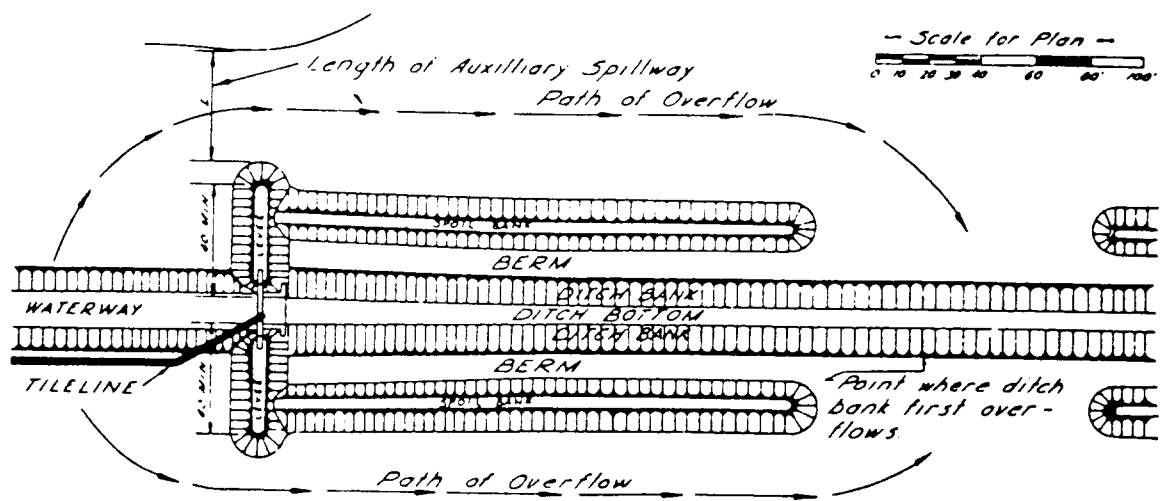 — Scale for Plan —
0 10 20 30 40 60 80' 100'
Length of Auxilliary Spillway
Path of Overflow
L
40 MIN
SPOIL BANK
BERM
DITCH BANK
WATERWAY
DITCH BOTTOM
DITCH BANK
BERM
TILELINE
40 MIN
SPOIL BANK
Point where ditch
bank first over-
flows.
Path of Overflow